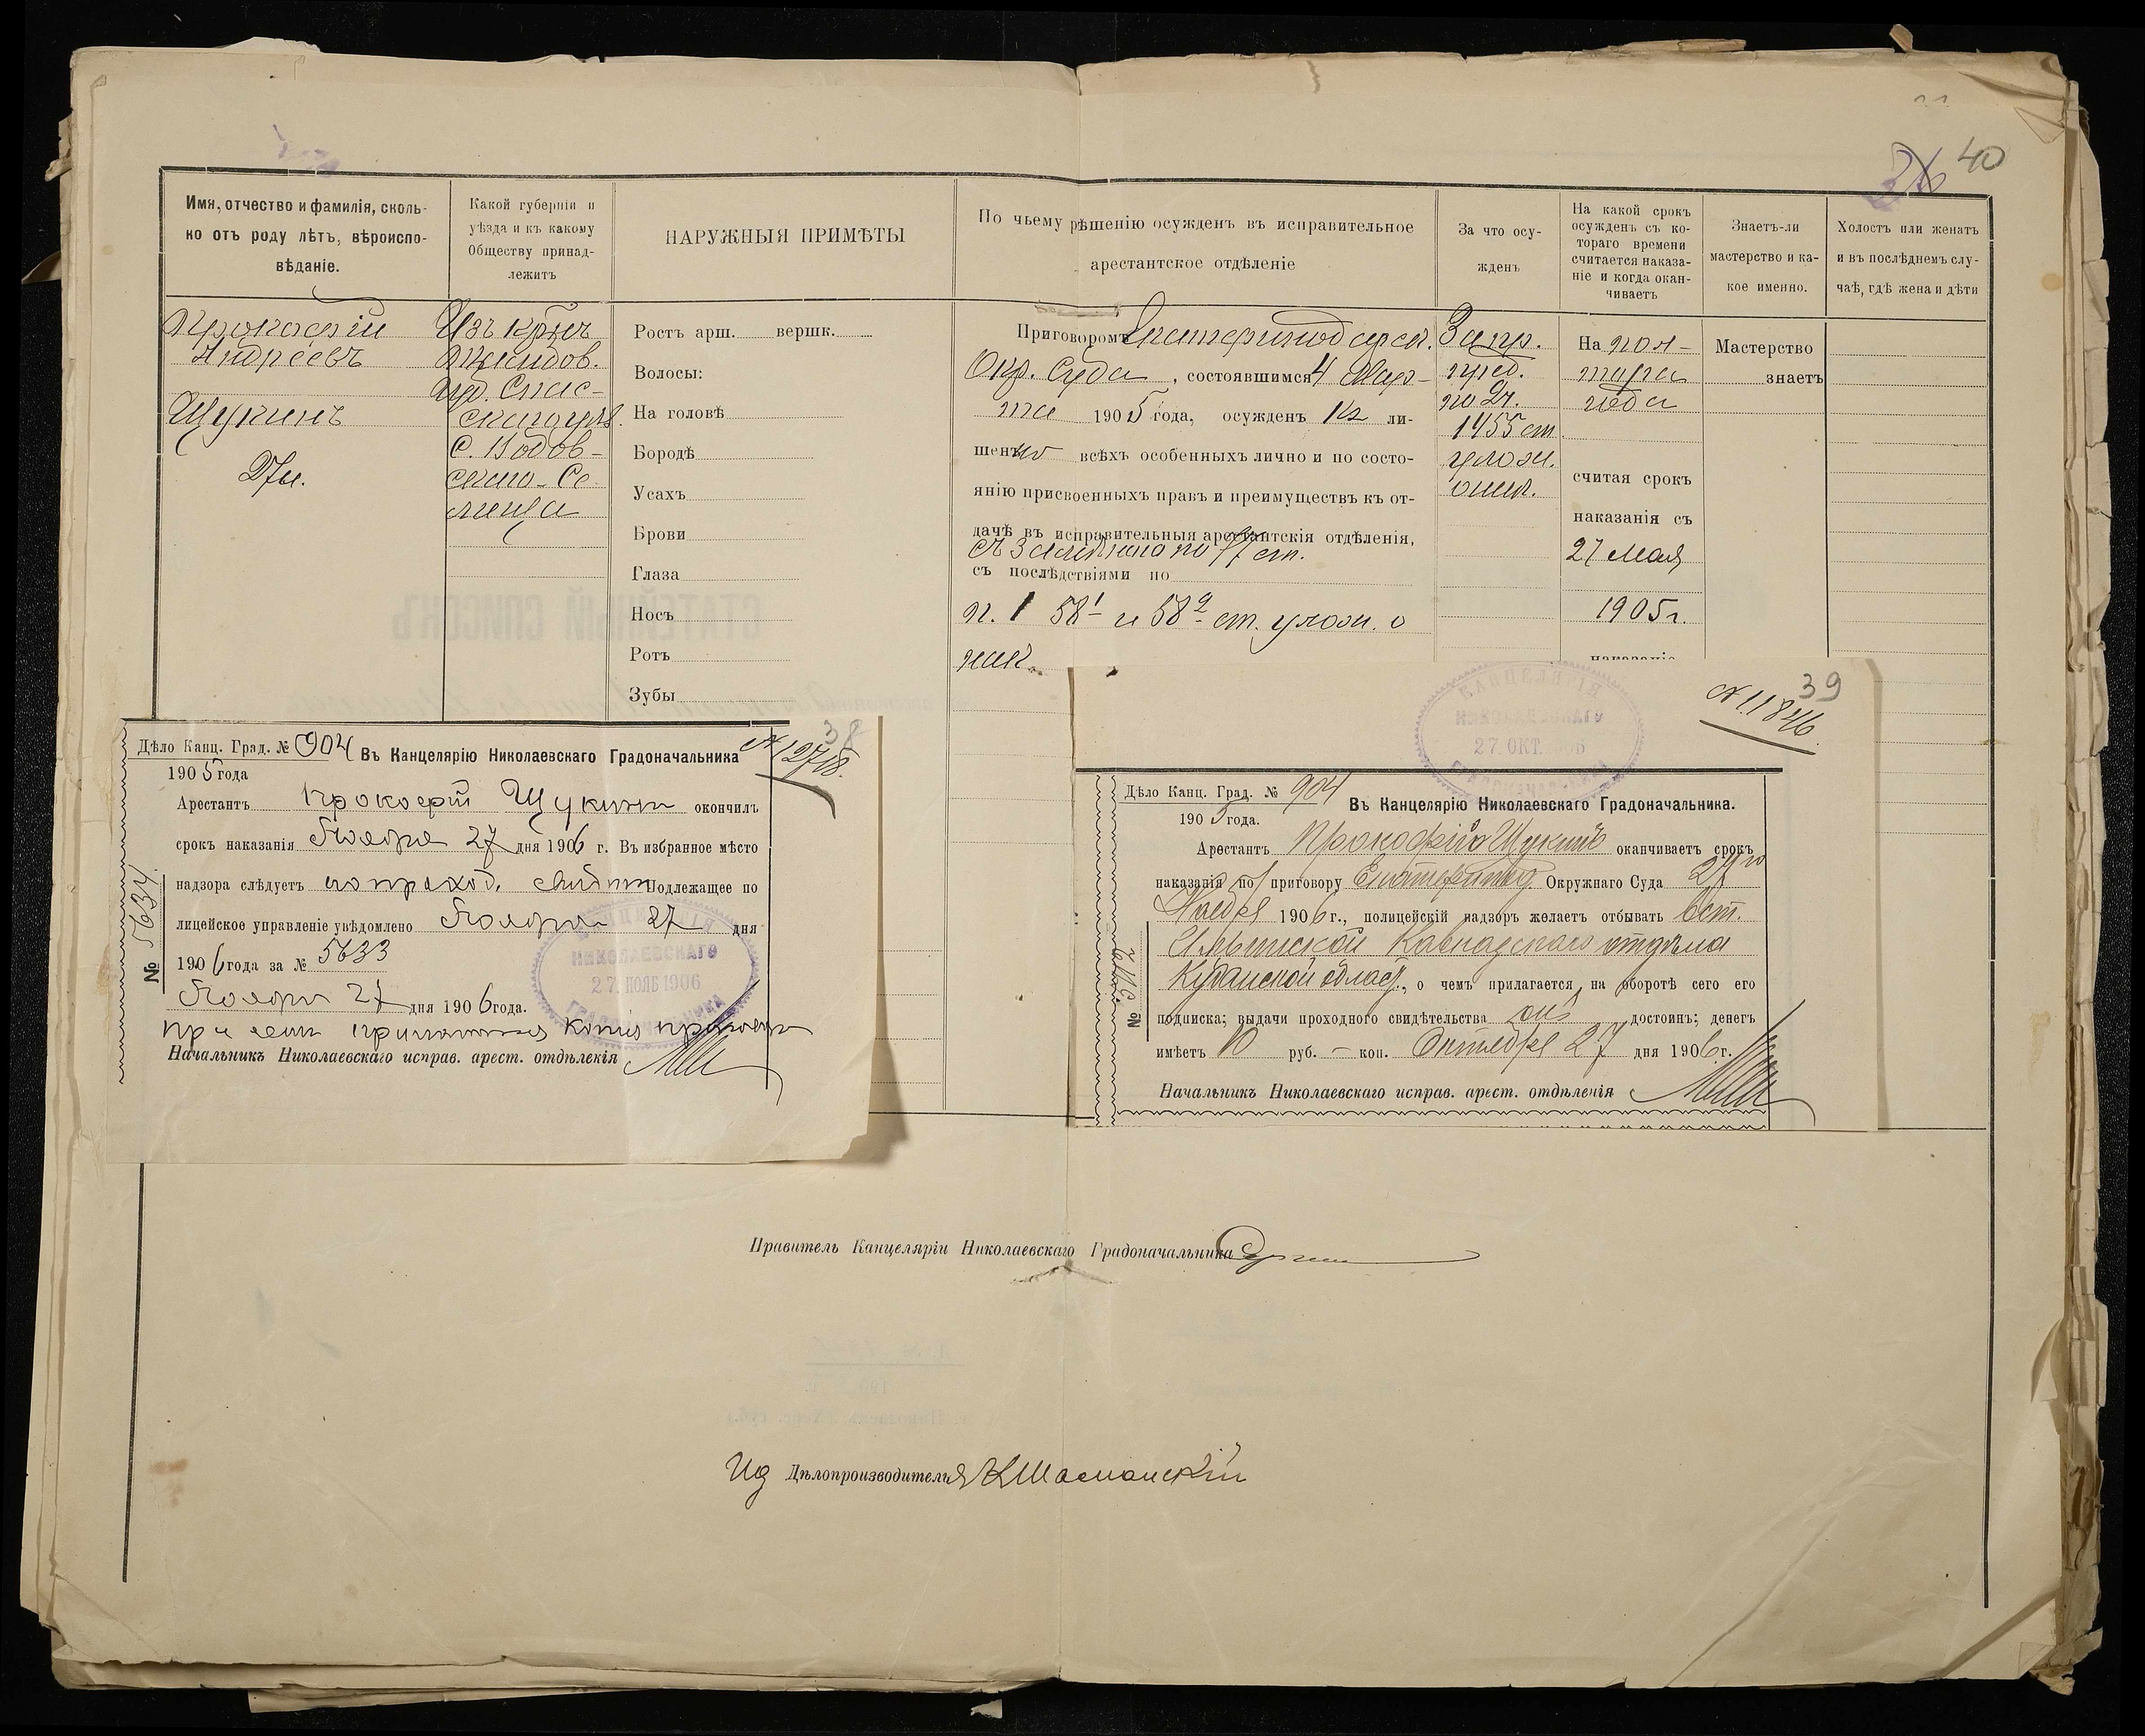 40
Имя, отчество и фамилія, сколь-
ко отъ роду лѣтъ, вѣроиспо-
вѣданіе.
Какой губерніи и
уѣзда и къ какому
Обществу принад-
лежитъ
НАРУЖНЫЯ ПРИМѢТЫ
По чьему рѣшенію осужденъ въ исправительное
арестантское отдѣленіе
За что осу-
жденъ
На какой срокъ
осужденъ съ ко-
тораго времени
считается наказа-
ніе и когда окан-
чиваетъ
Знаетъ-ли
мастерство и ка-
кое именно.
Холостъ или женатъ
и въ послѣднемъ слу-
чаѣ, гдѣ жена и дѣти
Прокофій
Андреевъ
Щукинъ
27 л.
Изъ
Спас-
скаго
Ростъ арш. вершк.
Волосы:
На головѣ
Бородѣ
Усахъ
Брови
Глаза
Носъ
Ротъ
Зубы
Приговоромъ Екатеринодарск.
Окр. Суда, состоявшимся 4 Мар-
та 1905 года, осужденъ къ ли-
шенію всѣхъ особенныхъ лично и по состо-
янію присвоенныхъ правъ и преимуществъ къ от-
дачѣ въ исправительныя арестантскія отдѣленія,
съ замѣною по 77 ст.
съ послѣдствіями по
п. 1 58¹ и 58² ст. улож. о
нак.
За пр.
пред.
по 2 ч.
1455 ст.
улож.
На пол-
тора
года
считая срокъ
наказанія съ
27 Мая
1905 г.
Мастерство
знаетъ
38
№ 12718.
Дѣло Канц. Град. № 904
1905 года
Въ Канцелярію Николаевскаго Градоначальника
Арестантъ Прокофій Щукинъ окончилъ
срокъ наказанія Ноября 27 дня 1906 г. Въ избранное мѣсто
надзора слѣдуетъ по проход. свидѣт. Подлежащее по
лицейское управленіе увѣдомлено Ноября 27 дня
1906 года за № 5633
Ноября 27 дня 1906 года.
При семъ копія
Начальникъ Николаевскаго исправ. арест. отдѣленія
№ 5634
КАНЦЕЛЯРІЯ
НИКОЛАЕВСКАГО
27. НОЯБ 1906
ГРАДОНАЧАЛЬНИКА
39
№ 11846.
КАНЦЕЛЯРІЯ
НИКОЛАЕВСКАГО
27. ОКТ. 1906
ГРАДОНАЧАЛЬНИКА
Дѣло Канц. Град. № 904
1905 года.
Въ Канцелярію Николаевскаго Градоначальника.
Арестантъ Прокофій Щукинъ оканчиваетъ срокъ
наказанія по приговору Екатеринод. Окружнаго Суда 27го
Ноября 1906 г., полицейскій надзоръ желаетъ отбывать въ ст.
Ильинской Кавказскаго отдѣла
Кубанской област., о чемъ прилагается на оборотѣ сего его
подписка; выдачи проходного свидѣтельства онъ достоинъ; денегъ
имѣетъ 10 руб. — коп. Октября 27 дня 1906 г.
Начальникъ Николаевскаго исправ. арест. отдѣленія
№
Правитель Канцеляріи Николаевскаго Градоначальника
Ид Дѣлопроизводителя